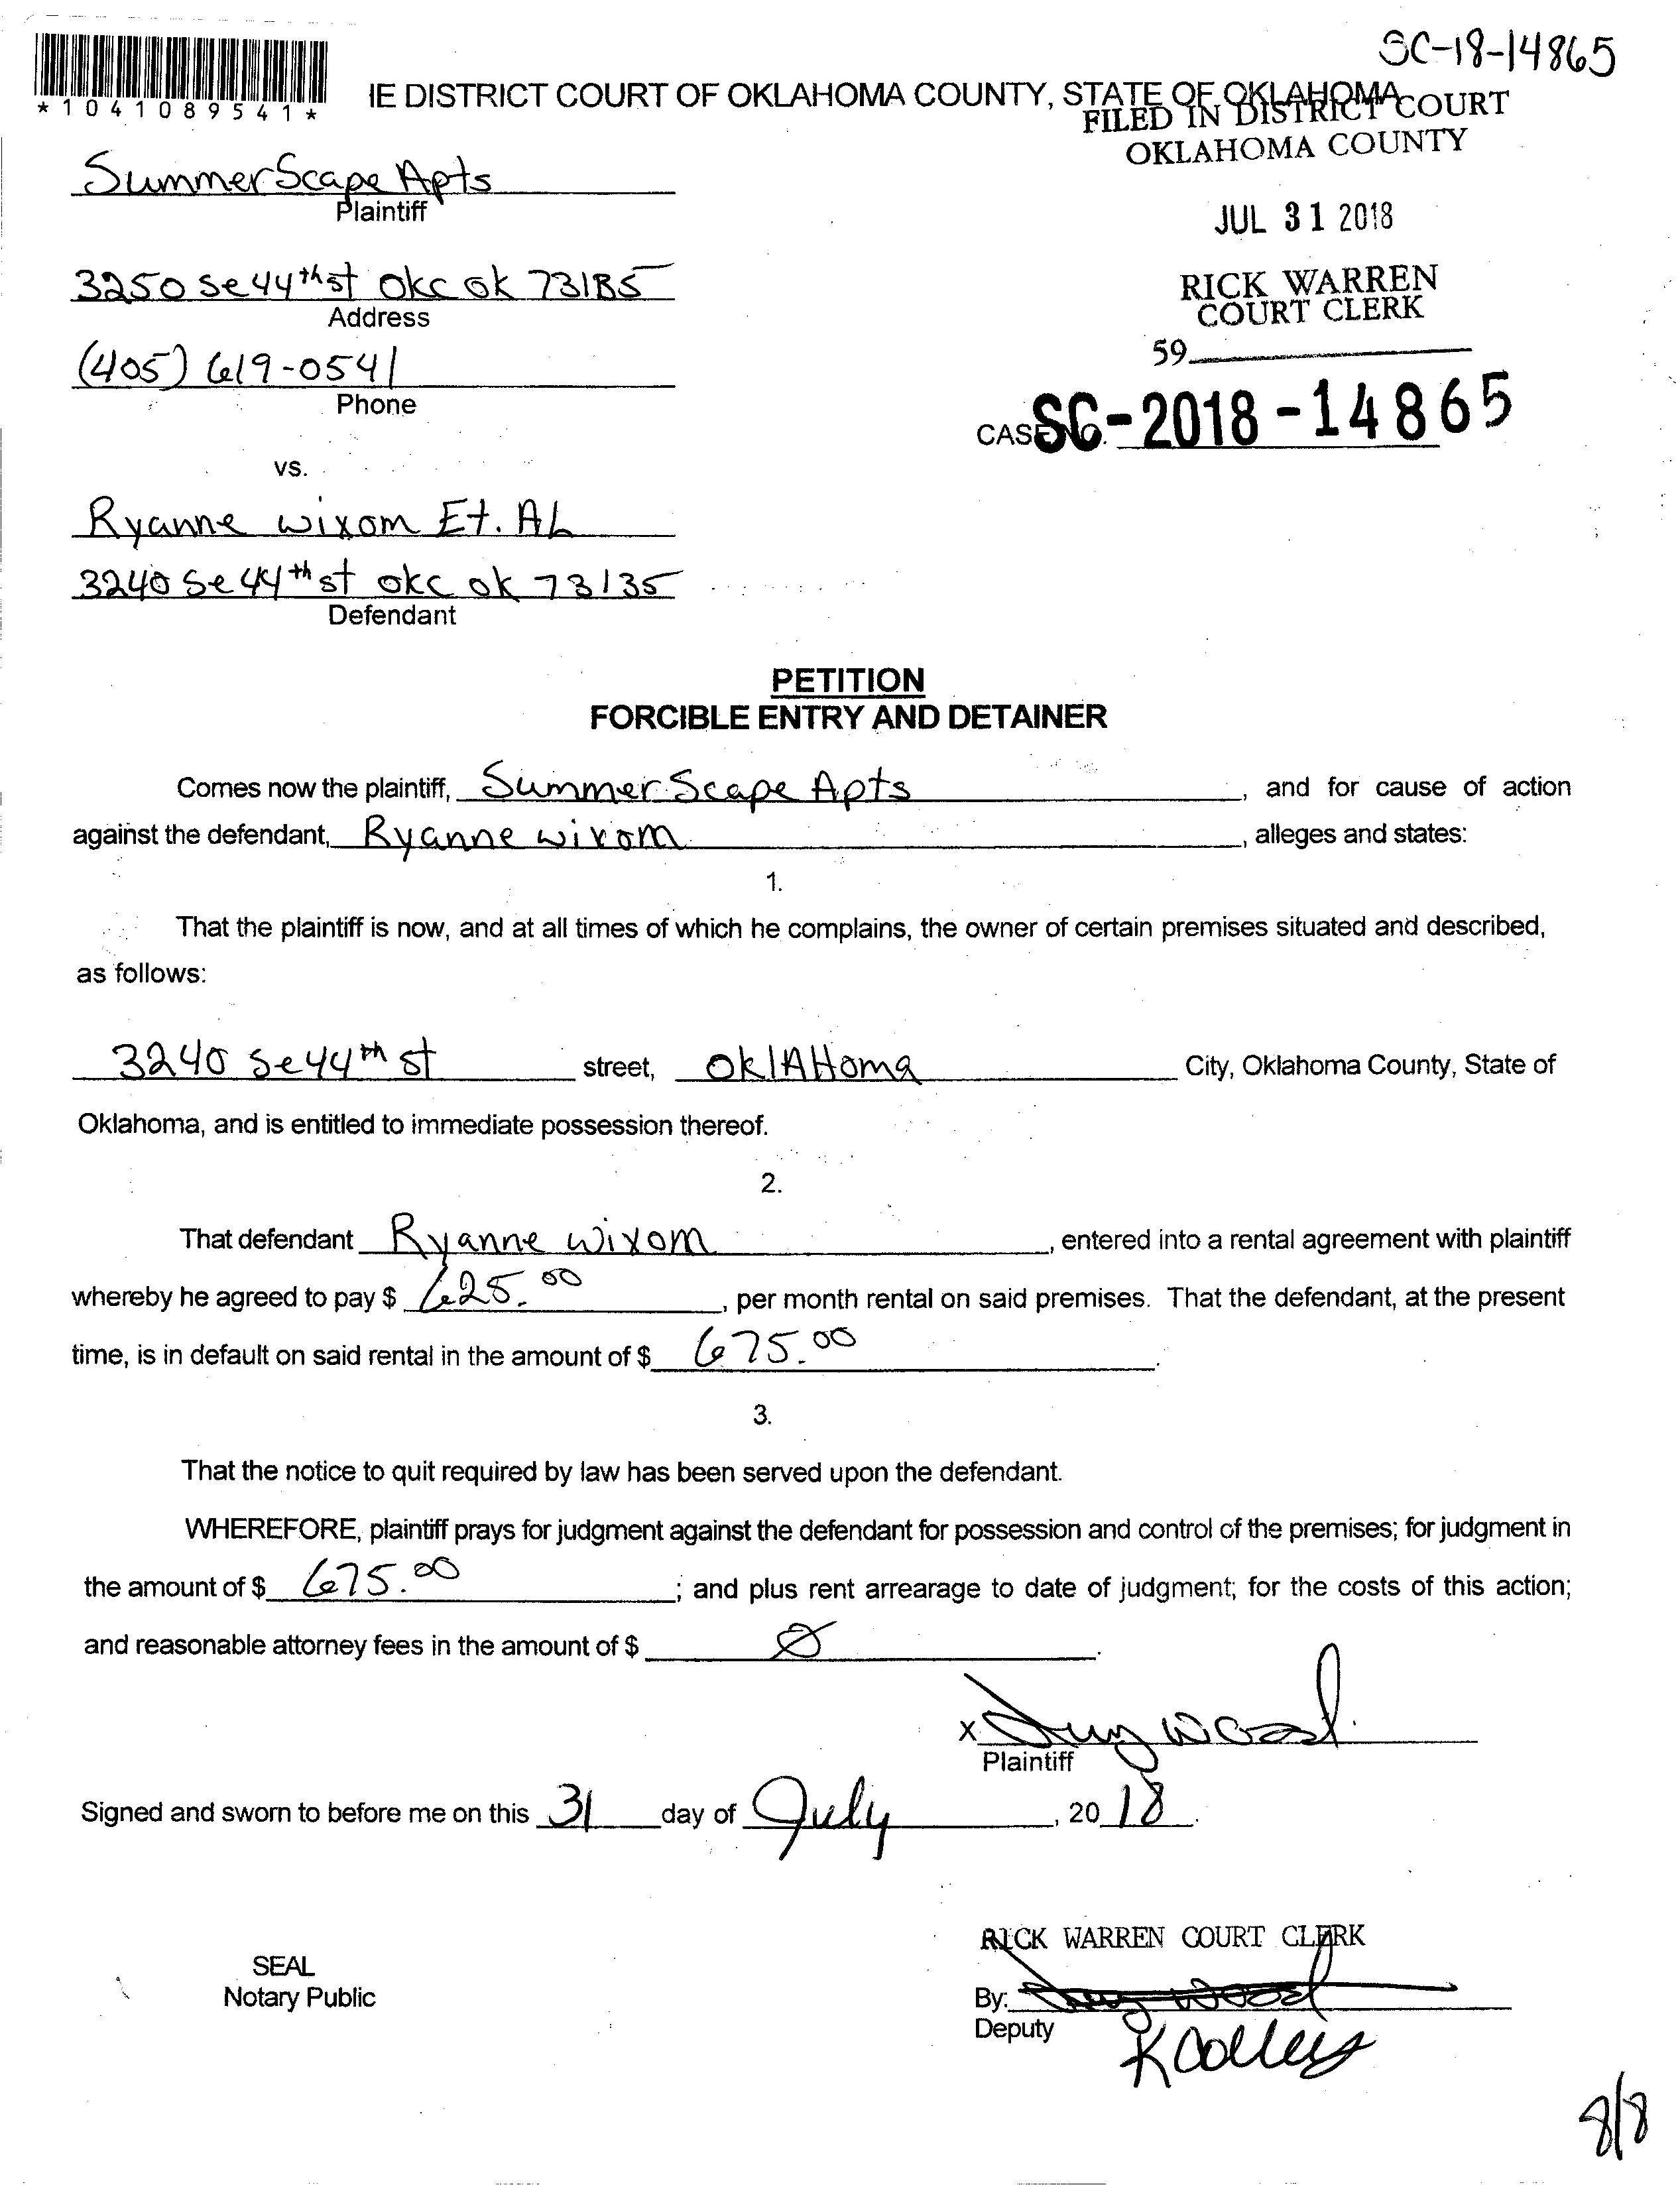 SC-18-14865
*1041089541*
IE DISTRICT COURT OF OKLAHOMA COUNTY, STATE OF OKLAHOMA
FILED IN DISTRICT COURT
OKLAHOMA COUNTY
SummerScape Apts
Plaintiff
JUL 31 2018
3250 Se 44th st Okc Ok 73135
Address
RICK WARREN
COURT CLERK
(405) 619-0541
Phone
59
CASE NO. SC-2018-14865
vs.
Ryanne wixom Et. AL
3240 Se 44th st okc ok 73135
Defendant
PETITION
FORCIBLE ENTRY AND DETAINER
Comes now the plaintiff, SummerScape Apts, and for cause of action
against the defendant, Ryanne wixom, alleges and states:
1.
That the plaintiff is now, and at all times of which he complains, the owner of certain premises situated and described,
as follows:
3240 Se 44th st street, OklAHoma City, Oklahoma County, State of
Oklahoma, and is entitled to immediate possession thereof.
2.
That defendant Ryanne Wixom, entered into a rental agreement with plaintiff
whereby he agreed to pay $ 625.00, per month rental on said premises. That the defendant, at the present
time, is in default on said rental in the amount of $ 675.00.
3.
That the notice to quit required by law has been served upon the defendant.
WHEREFORE, plaintiff prays for judgment against the defendant for possession and control of the premises; for judgment in
the amount of $ 675.00; and plus rent arrearage to date of judgment; for the costs of this action;
and reasonable attorney fees in the amount of $ Ø.
X Wood
Plaintiff
Signed and sworn to before me on this 31 day of July, 2018.
RICK WARREN COURT CLERK
SEAL
Notary Public
By:
Deputy
8/8